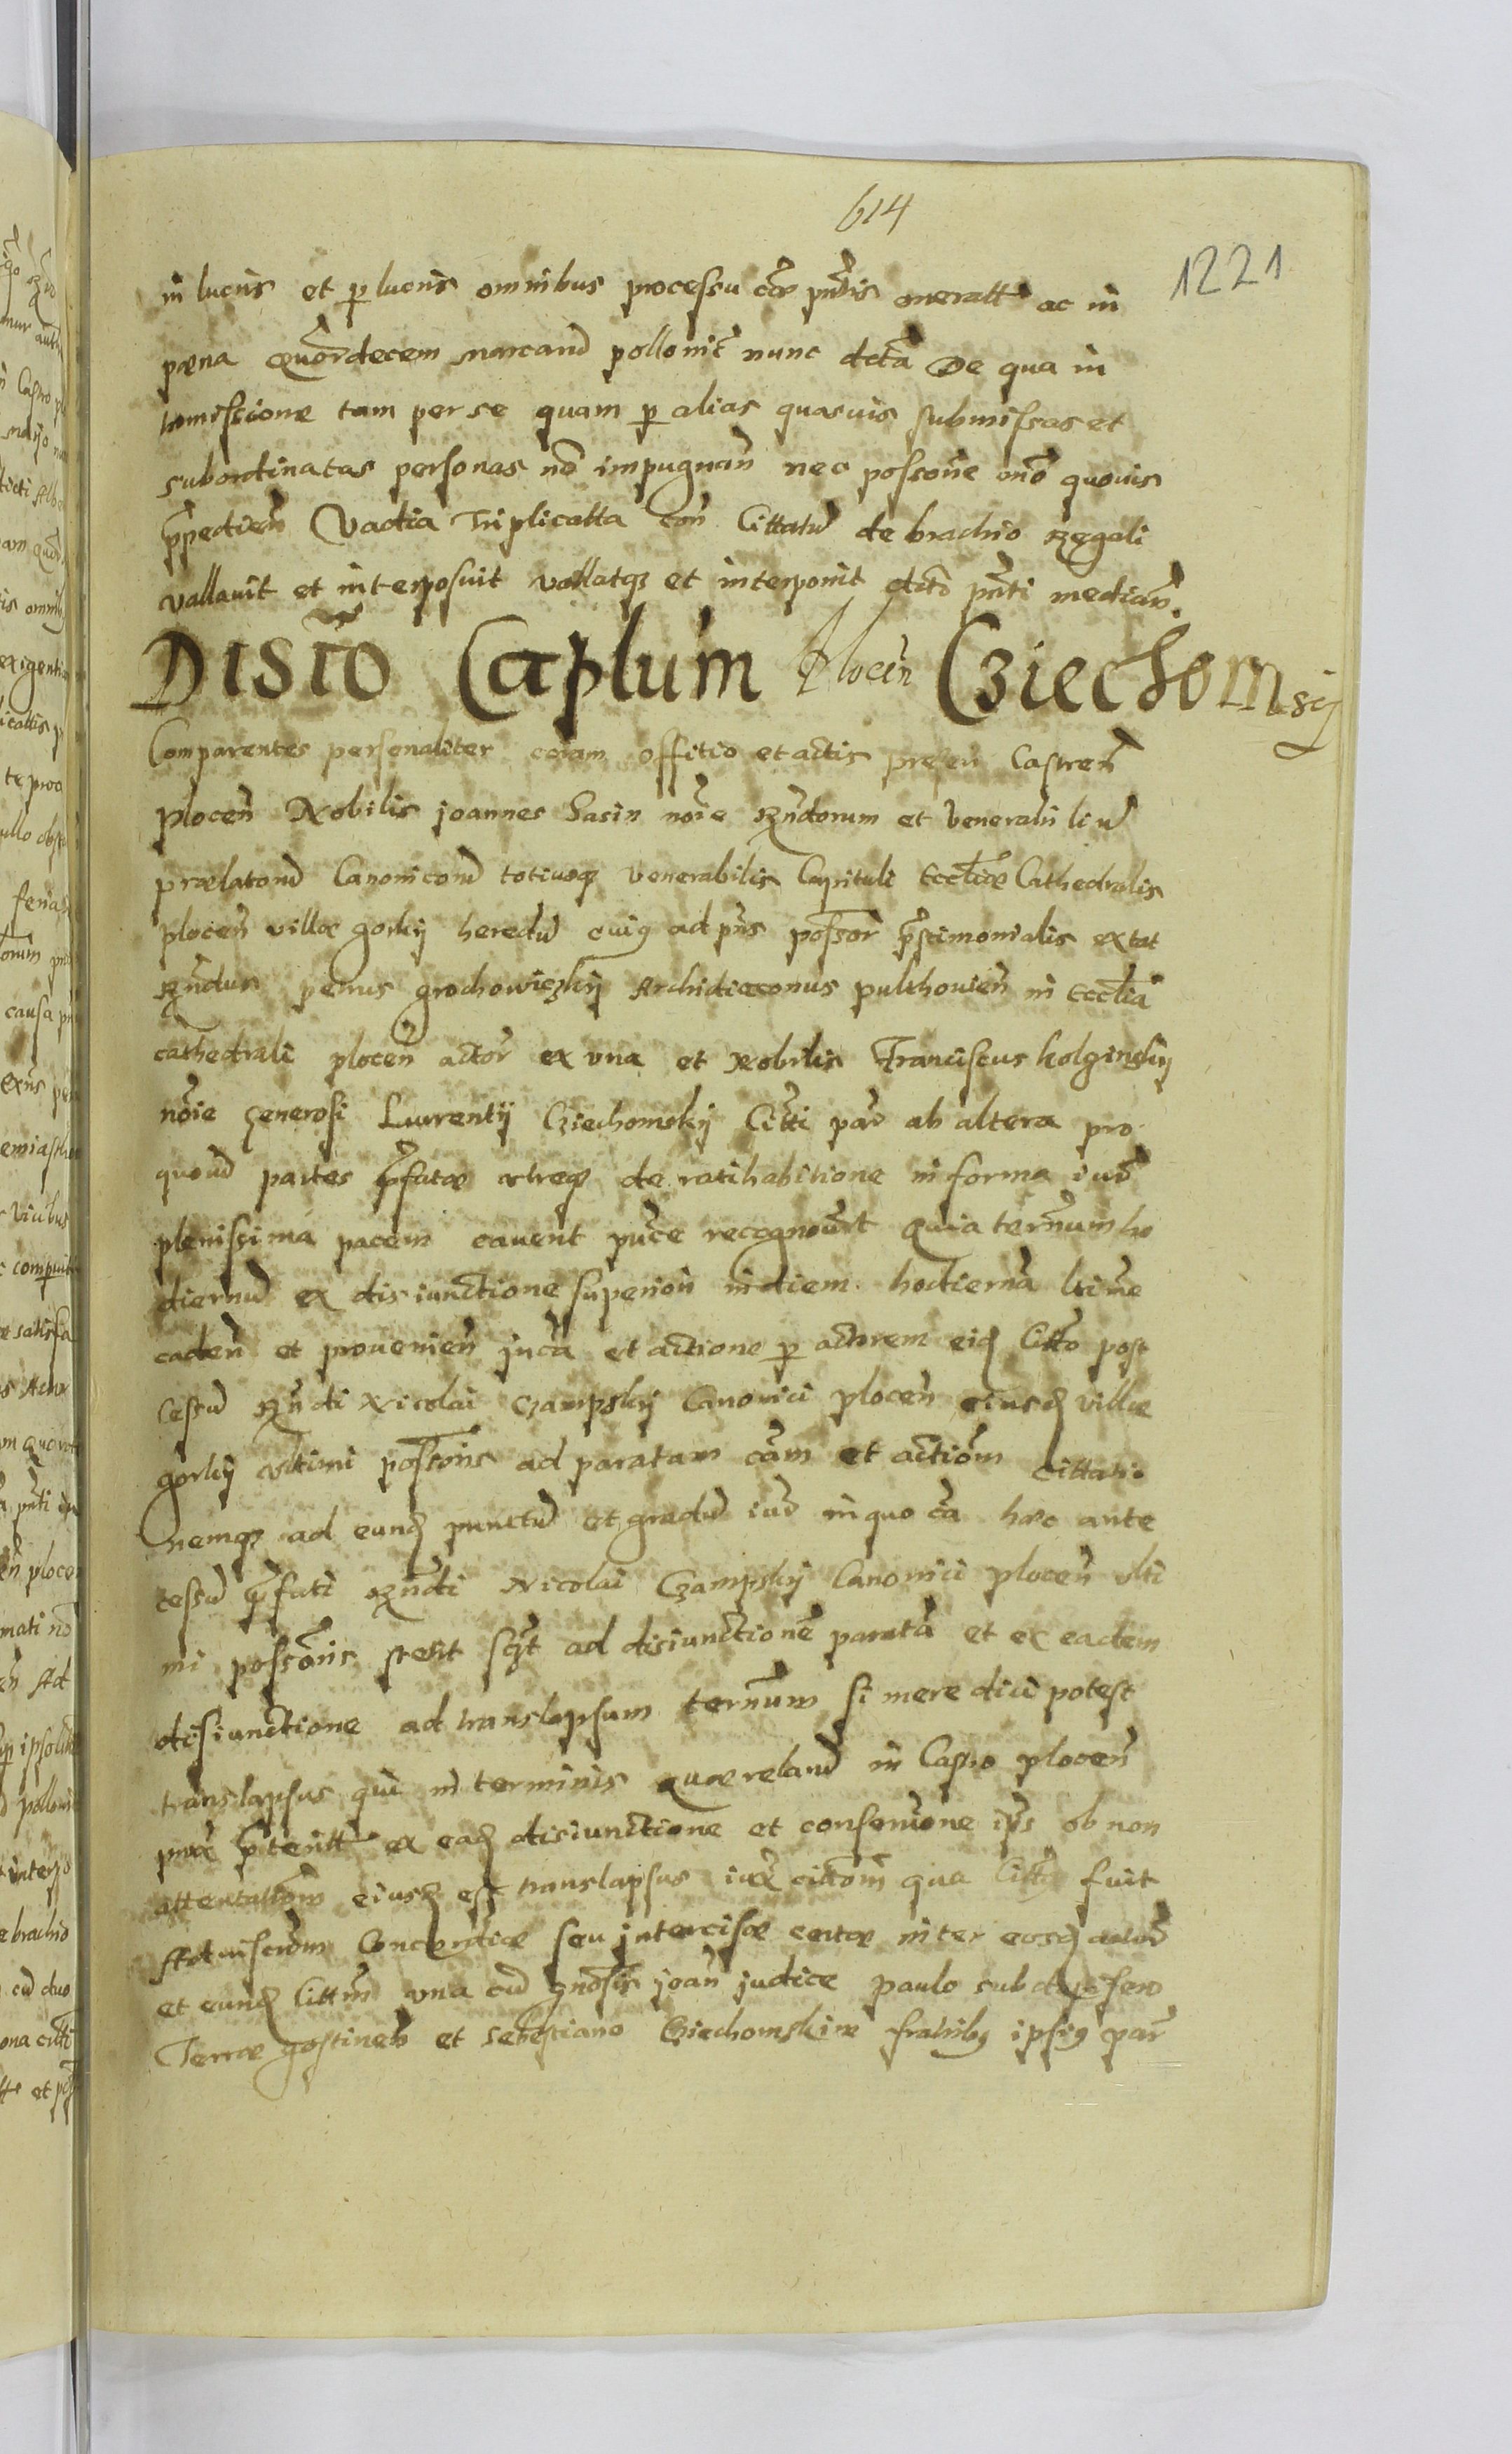 614
1221
in lucris et p lucris omnibus processu cãe pntis oneratt ac in
pæna quordecem marcarũ polloniĉ nunc dctã De qua in
tromissione tam per se quam p alias quasuis submissas et
subordinatas personas nõ impugnan̄ nec possone õno quouis
p̄pedien̄ Vadia Triplicatta con Cittatũ de brachio Regali
vallauit et interposuit vallatq et interponit dcto pnti median̄.
Disiõ Caplum Plocen̄ Cziechomsij
Comparentes personaliter coram offitio et actis presen Castren̄
plocen̄ Nobilis joannes Sasin noĩe Rndorum et Venerabiliũ
prælatorũ Canonicorũ totiusq venerabilis Capituli Eccliæ Cathedralis
plocen̄ villæ gorky heredũ cuiq ad pns possor p̄stimonialis extat
Rndus petrus grochowiczkij Archidiaconus pulthouien̄ in Ecclia
cathedrali plocen̄ actor ex vna et Nobilis Franciscus kolginskij
noĩe generosi Laurentij Cziechomskij Citti par ab altera pro
quorũ partes p̄fatæ vtræq de ratihabitione in forma iurũ
plenissima pacem cauent pnce recognouert Quia ternum ho
diernũ ex disiunctione superiori in diem hodiernã ltime
caden̄ et prouenien̄ in cã et actione p actorem eid Citto post
cessũ Rndi Nicolai Czampskij Canonici plocen̄ eiusd villæ
gorky vltimi possoris ad paratam cãm et actiõm cittatio
nemq ad eund punctũ et gradũ iurũ in quo cã hæc ante
cessũ p̄fati Rndi Nicolai Czampskij Canonici plocen̄ vlti
mi possoris stetit sczt ad disiunctionē paratã et ex eadem
disiunctione ad translapsum ternum si mere dici potest
translapsus qui in terminis quærelarũ in Castro plocen̄
pnre p̄teritt ex ead disiunctione et conseruõne ipsius ob non
attentatiõm eiusd est translapsus iuxa citõm qua Cittq fuit
Ad viscerõm Concordiæ seu intercisæ certæ inter eosd actorũ
et eund Cittm vna cũ gnosis joan̄ judice paulo subdapifero
Terræ gostinen̄ et Sebestiano Cziechomskie fratribq ipsiq par